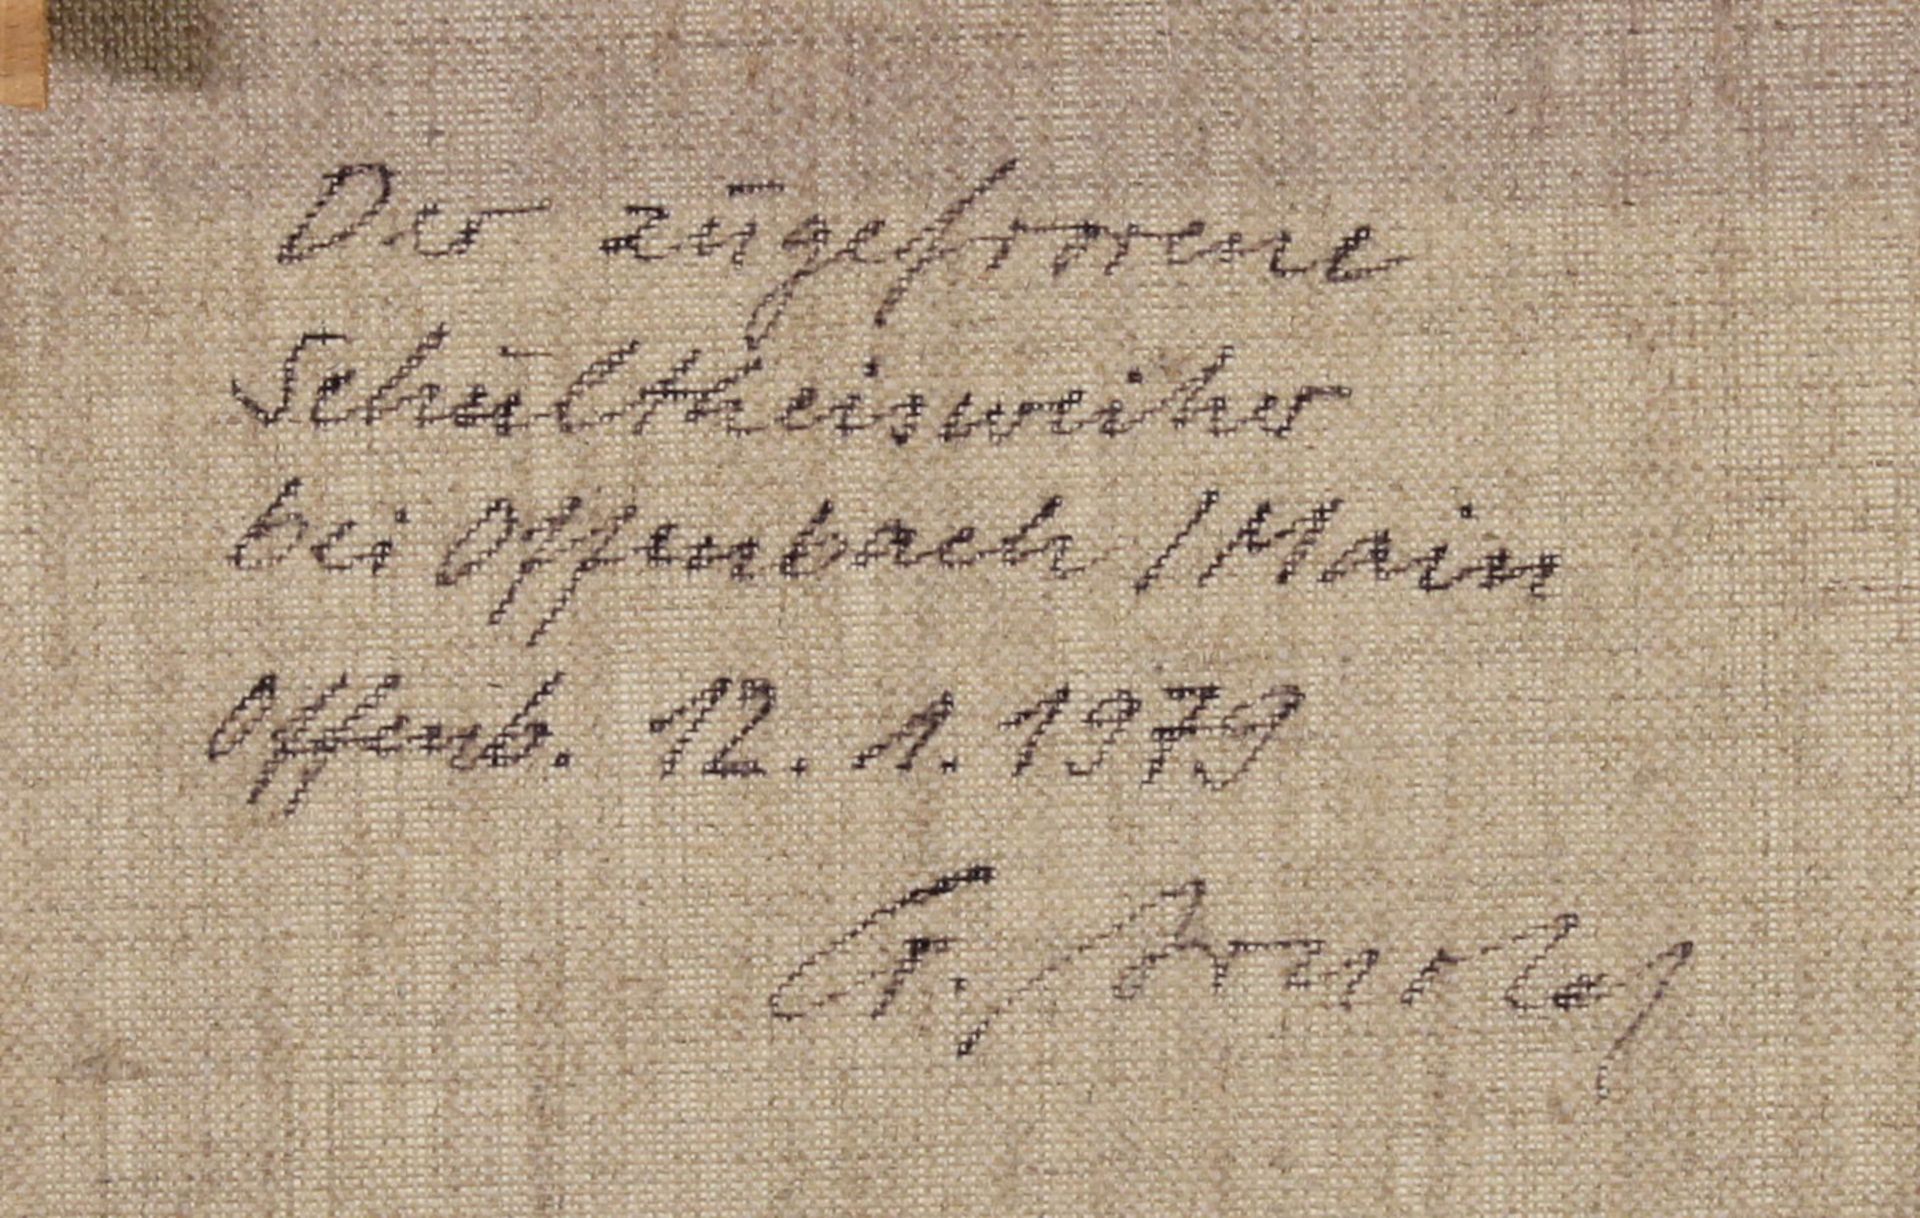 Der zugefrorene
Schultheisweiher
bei Offenbach / Main
Offenb. 12. 1. 1979